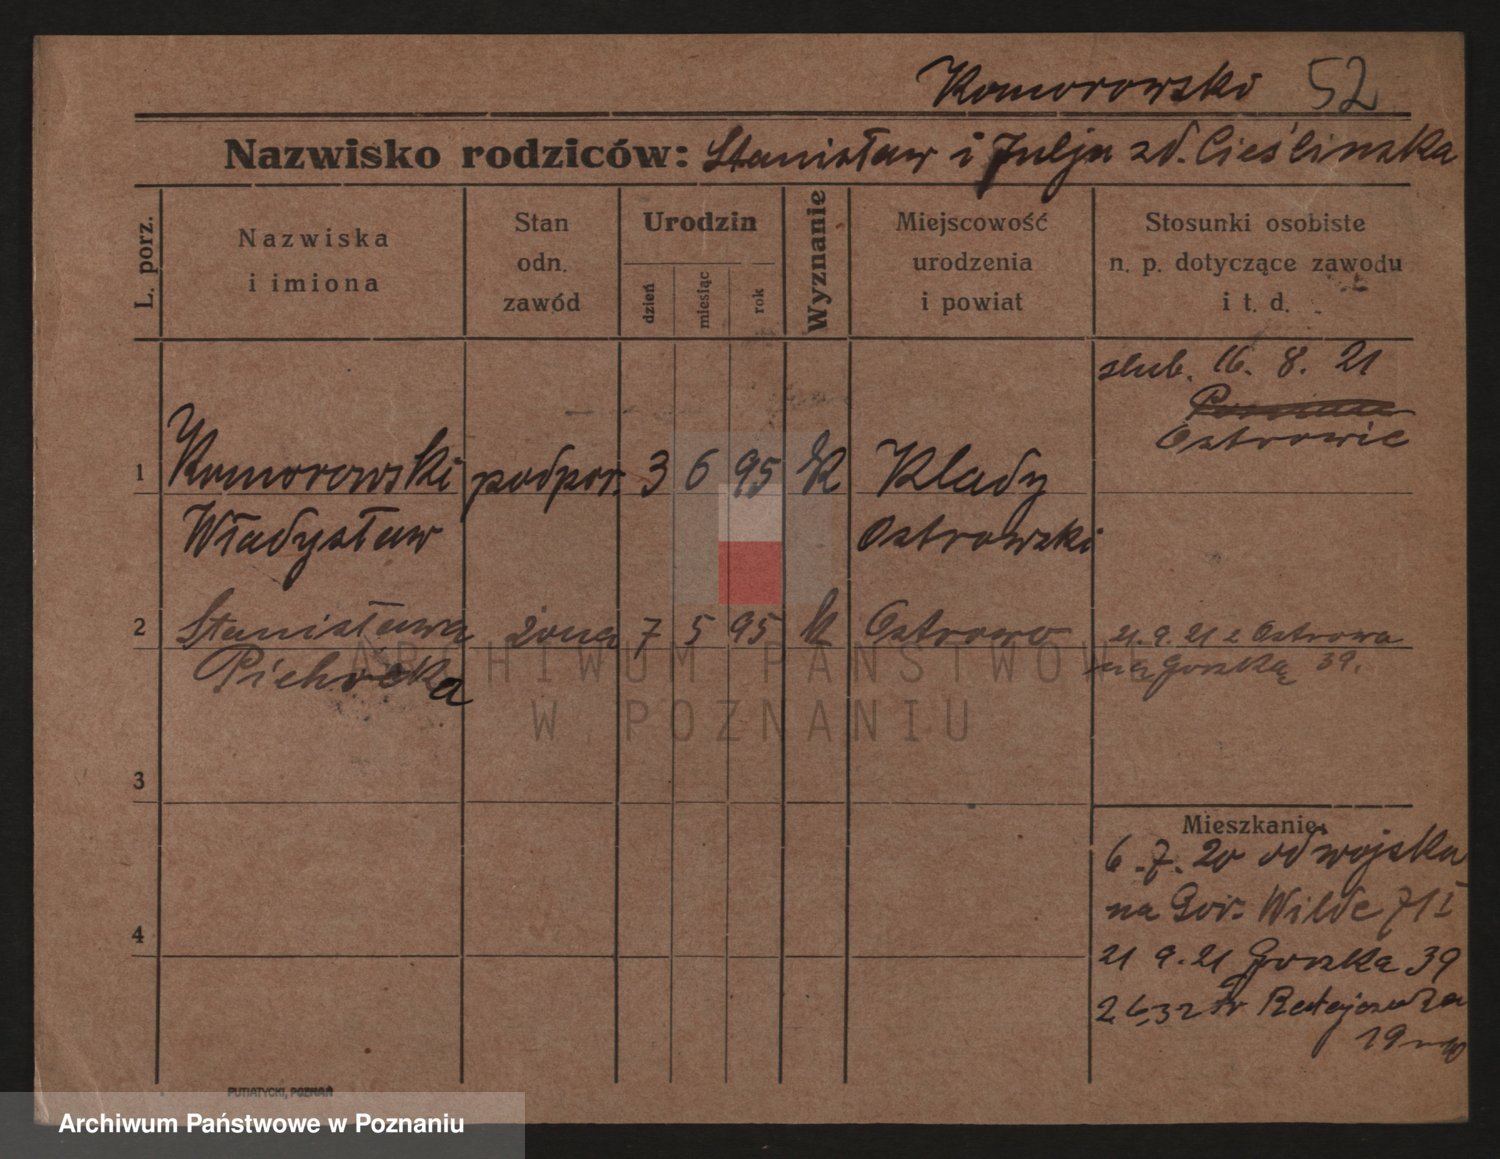 Komorowski 52
Nazwisko rodziców: Stanisław i Julja zd. Cieślinska
L. porz.
Nazwiska
i imiona
Stan
odn.
zawód
Urodzin
dzień
miesiąc
rok
Wyznanie
Miejscowość
urodzenia
i powiat
Stosunki osobiste
n. p. dotyczące zawodu
i t. d.
slub. 16. 8. 21
Ostrowie
1 Komorowski podpor. 3 6 95 k Klady
Władysław Ostrowski
2 Stanisława żona 7 5 95 k Ostrowo 21. 9. 21 z Ostrowa
Pichocka na 39.
ARCHIWUM PAŃSTWOWE
W POZNANIU
3
Mieszkanie:
6. 7. 20 od wojska
na Gór. Wilde 71 I
4
21 9. 21 39
2.6.32 Ratajczaka
19
PUTIATYCKI, POZNAŃ
Archiwum Państwowe w Poznaniu